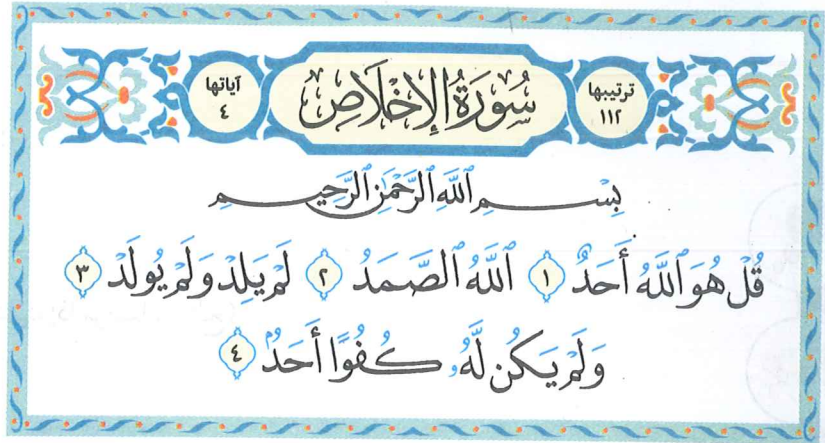 ترتيبها
١١٢
سُورَةُ الإِخْلَاصِ
آياتها
٤
بِسْمِ ٱللَّهِ ٱلرَّحْمَٰنِ ٱلرَّحِيمِ
قُلْ هُوَ ٱللَّهُ أَحَدٌ ١ ٱللَّهُ ٱلصَّمَدُ ٢ لَمْ يَلِدْ وَلَمْ يُولَدْ ٣
وَلَمْ يَكُن لَّهُۥ كُفُوًا أَحَدٌۢ ٤